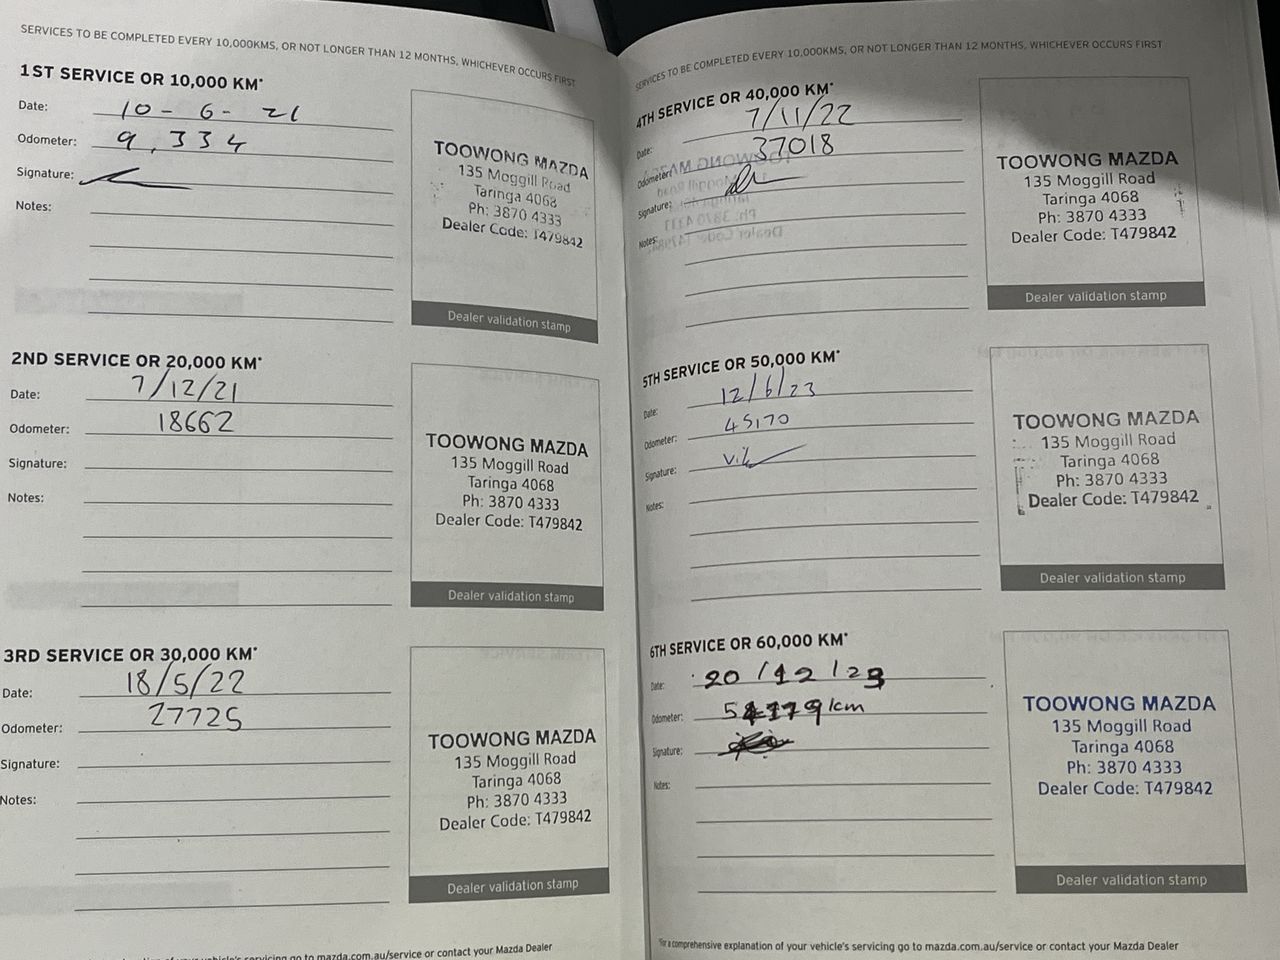 SERVICES TO BE COMPLETED EVERY 10,000KMS, OR NOT LONGER THAN 12 MONTHS, WHICHEVER OCCURS FIRST
1ST SERVICE OR 10,000 KM*
Date: 10 - 6 - 21
Odometer: 9,334
Signature:
Notes:
TOOWONG MAZDA
135 Moggill Road
Taringa 4068
Ph: 3870 4333
Dealer Code: T479842
Dealer validation stamp
2ND SERVICE OR 20,000 KM*
Date: 7/12/21
Odometer: 18662
Signature:
Notes:
TOOWONG MAZDA
135 Moggill Road
Taringa 4068
Ph: 3870 4333
Dealer Code: T479842
Dealer validation stamp
3RD SERVICE OR 30,000 KM*
Date: 18/5/22
Odometer: 27725
Signature:
Notes:
TOOWONG MAZDA
135 Moggill Road
Taringa 4068
Ph: 3870 4333
Dealer Code: T479842
Dealer validation stamp
vehicle's servicing go to mazda.com.au/service or contact your Mazda Dealer
SERVICES TO BE COMPLETED EVERY 10,000KMS, OR NOT LONGER THAN 12 MONTHS, WHICHEVER OCCURS FIRST
4TH SERVICE OR 40,000 KM*
Date: 7/11/22
Odometer: 37018
Signature:
Notes:
TOOWONG MAZDA
135 Moggill Road
Taringa 4068
Ph: 3870 4333
Dealer Code: T479842
Dealer validation stamp
5TH SERVICE OR 50,000 KM*
Date: 12/6/23
Odometer: 45170
Signature:
Notes:
TOOWONG MAZDA
135 Moggill Road
Taringa 4068
Ph: 3870 4333
Dealer Code: T479842
Dealer validation stamp
6TH SERVICE OR 60,000 KM*
Date: 20/12/23
Odometer: km
Signature:
Notes:
TOOWONG MAZDA
135 Moggill Road
Taringa 4068
Ph: 3870 4333
Dealer Code: T479842
Dealer validation stamp
*For a comprehensive explanation of your vehicle's servicing go to mazda.com.au/service or contact your Mazda Dealer